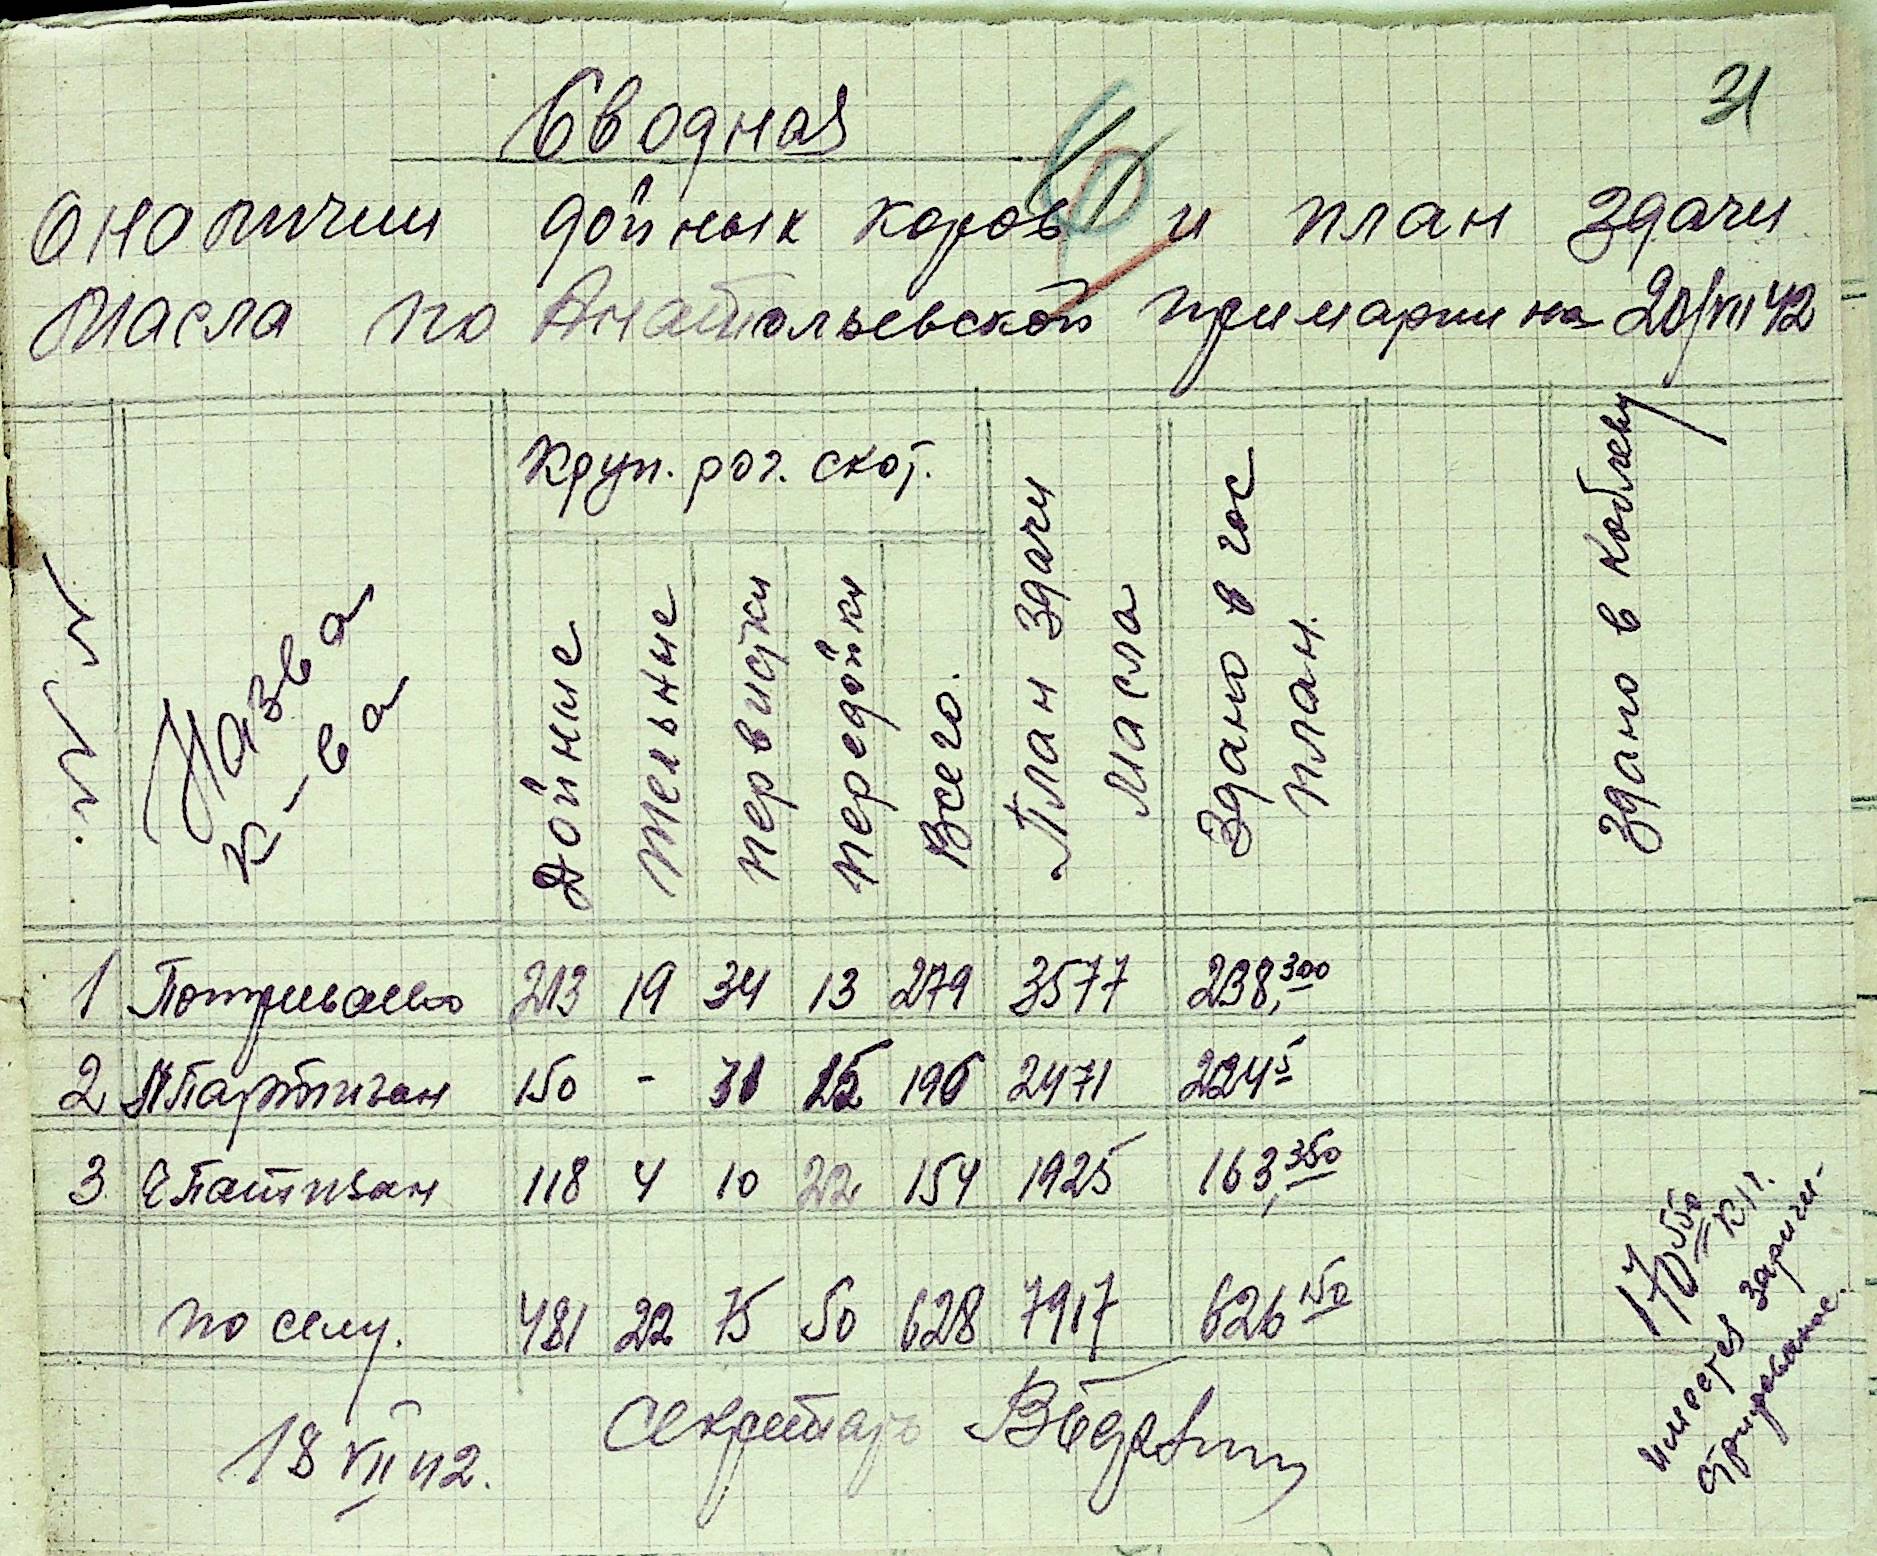 31
Сводная
о наличии дойных коров и план здачи
масла по Анатольевской примарии на 20/VII 42
№ № Назва к-ва Круп. рог. скот. План здачи масла Здано в гос план. Здано в коблеву
Дойные тельные первистки передойки Всего.
1 Потриваево 213 19 34 13 279 3577 238,300
2 Партизан 150 - 31 15 196 2471 224 5
3 Ч Патизан 118 4 10 22 154 1925 163,350
по селу. 481 22 75 50 628 7917 626 150
170 550 кгр.
имеется зареги-
стрированое.
18 VII 42. Секретарь